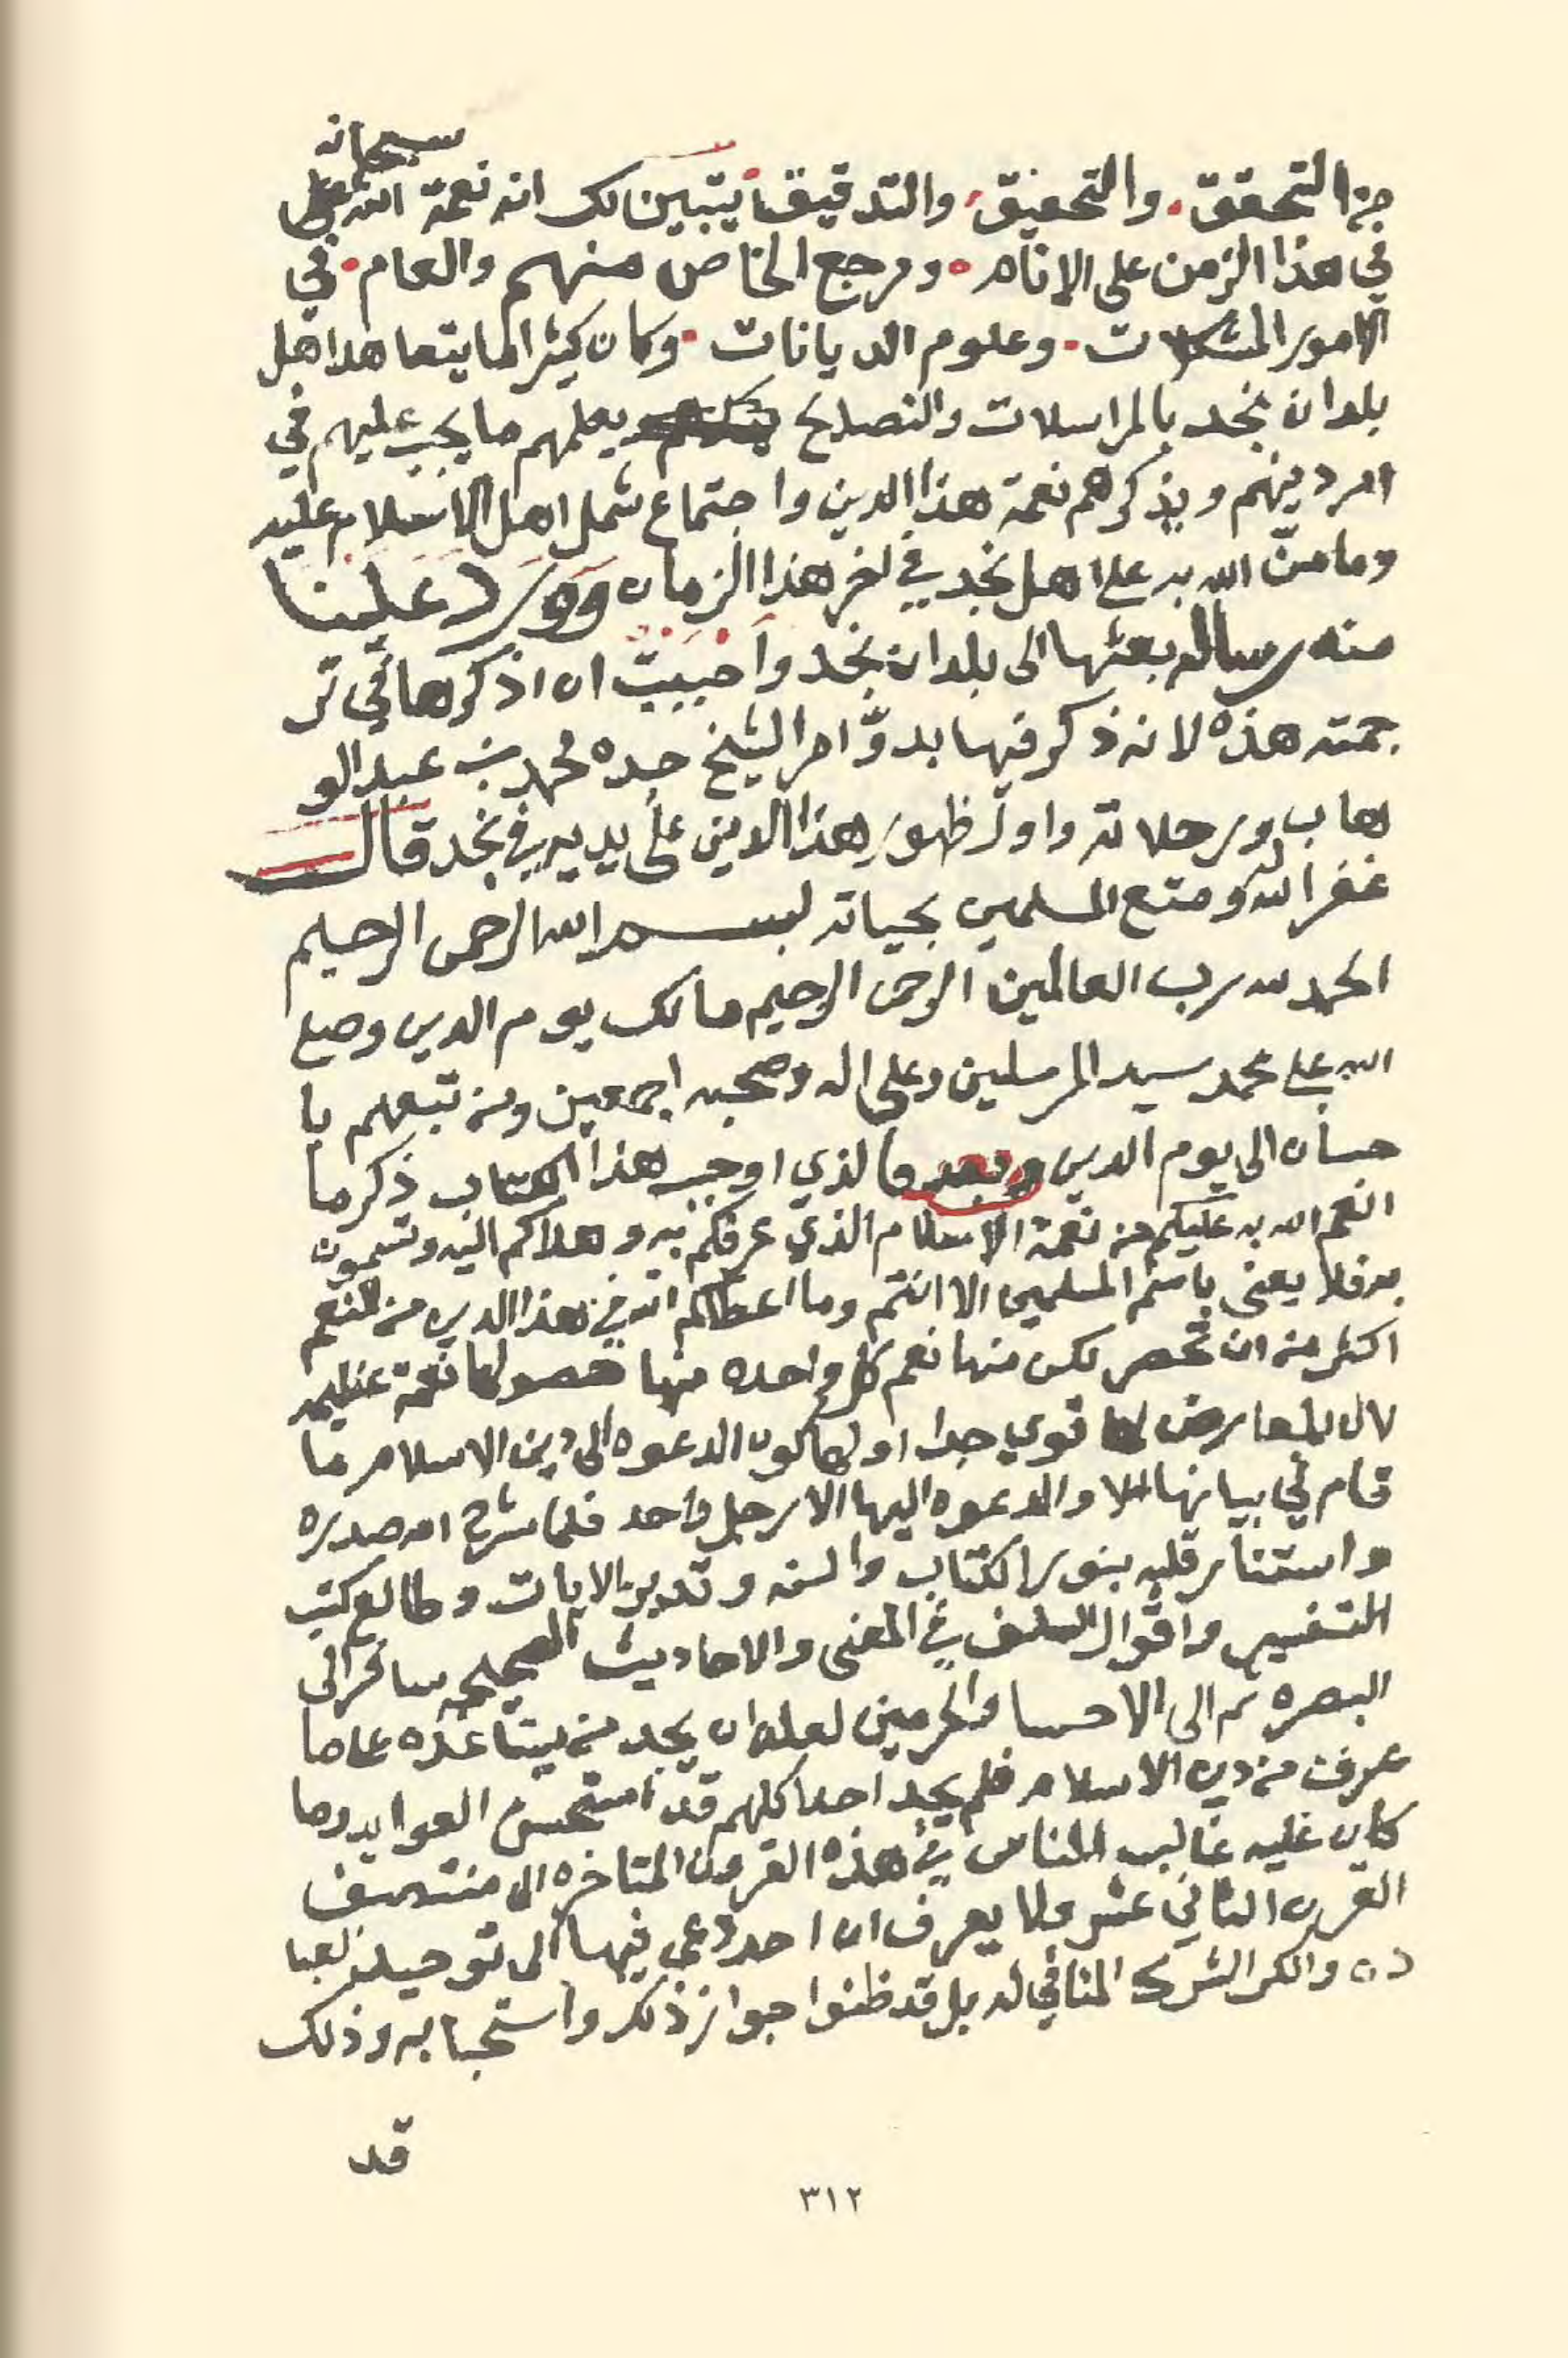 سبحانه
من التحقق والتحقيق والتدقيق يتبين لك انه نعمة الله
في هذا الزمن على الانام ومرجع الخاص منهم والعام في
الامور المشكلات وعلوم الديانات وكان كثيرا ما يتعاهد اهل
بلدان نجد بالمراسلات والنصايح يعلمهم ما يجب عليهم في
امر دينهم ويذكرهم نعمة هذا الدين واجتماع شمل اهل الاسلام عليه
وما منّ الله به على اهل نجد في اخر هذا الزمان وورد علينا
منه رساله بعثها الى بلدان نجد واحببت ان اذكرها في تر
جمته هذه لانه ذكر فيها بدوّ امر الشيخ جده محمد بن عبد الو
هاب ورحلاته واول ظهور هذا الدين على يديه في نجد قال
غفر الله له ومتع المسلمين بحياته بسم الله الرحمن الرحيم
الحمد لله رب العالمين الرحمن الرحيم مالك يوم الدين وصلى
الله على محمد سيد المرسلين وعلى اله وصحبه اجمعين ومن تبعهم با
حسان الى يوم الدين وبعد فالذي اوجب هذا الكتاب ذكر ما
انعم الله به عليكم من نعمة الاسلام الذي عرفكم به وهداكم اليه وتسمون
به فلا يعنى باسم المسلمين الا انتم وما اعطاكم الله في هذا الدين من النعم
اكثر من ان تحصر لكن منها نعم كل واحده منها حصولها نعمة عظيمه
لان المعارض لها قوي جدا اولها كون الدعوه الى دين الاسلام ما
قام في بيانها والدعوه اليها الا رجل واحد فلما شرح الله صدره
واستنار قلبه بنور الكتاب والسنه وتدبر الايات وطالع كتب
التفسير واقوال السلف في المعنى والاحاديث الصحيحه سافر الى
البصره ثم الى الاحسا والحرمين لعله ان يجد من يساعده على ما
عرف من دين الاسلام فلم يجد احدا كلهم قد استحسن العوايد وما
كان عليه غالب الناس في هذه القرون المتاخره الى منتصف
القرن الثاني عشر ولا يعرف ان احد دعى فيها الى توحيد العبا
ده وانكر الشرك المنافي له بل قد ظنوا جواز ذلك واستحبابه وذلك
قد
٣١٢